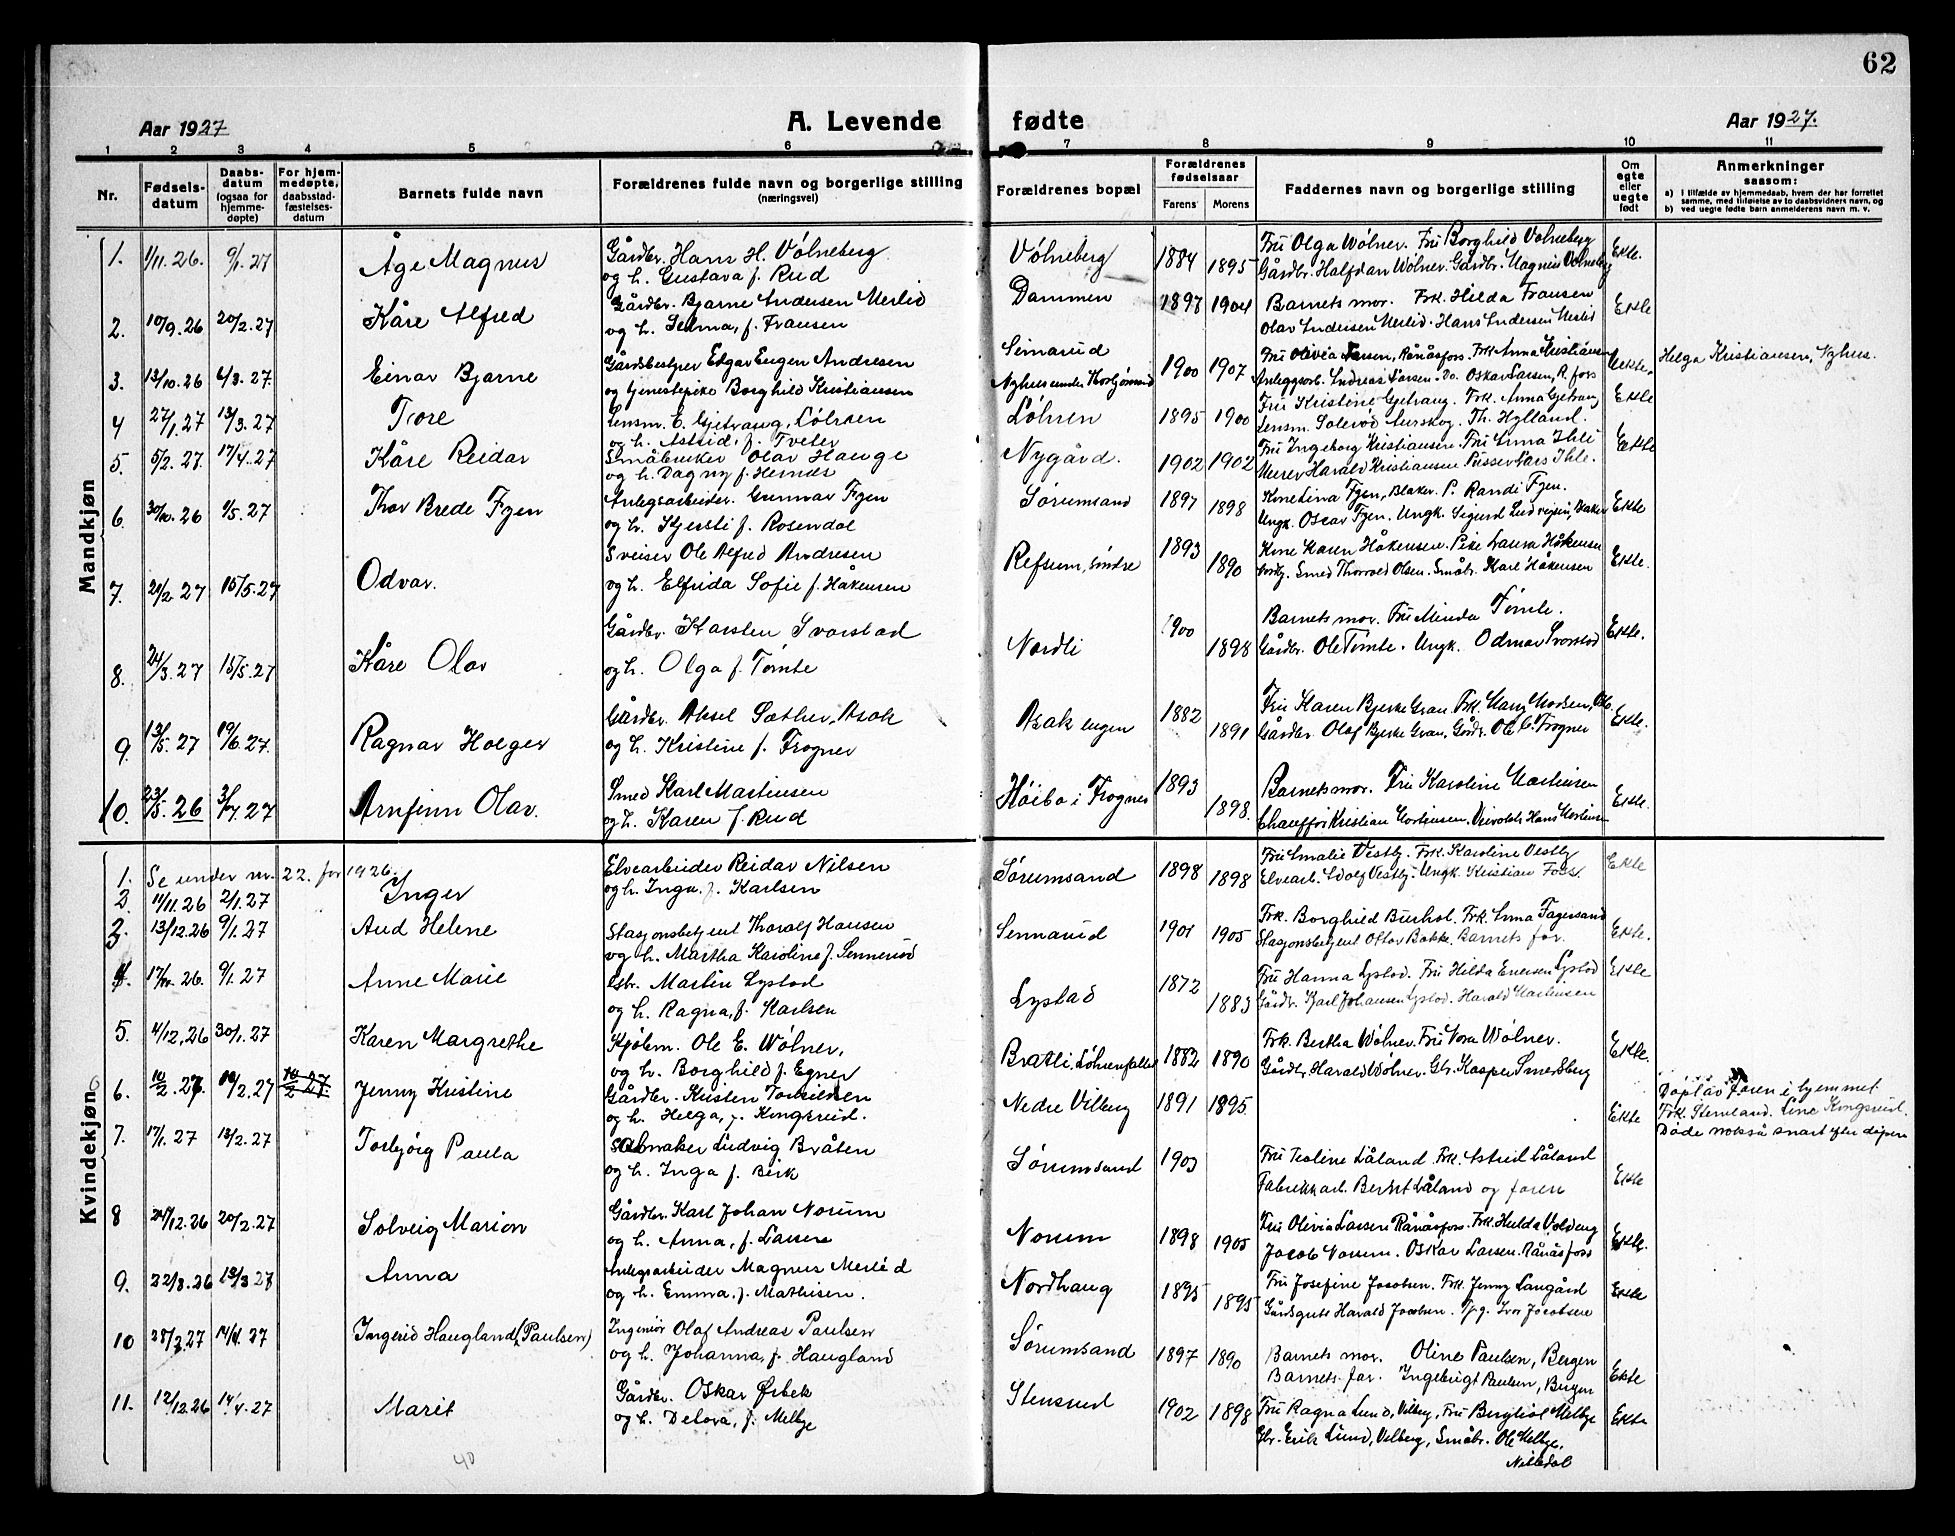 62
Aar 1927
A. Levende fødte
Aar 1927.
1 2 3 4 5 6 7 8 9 10 11
Nr.
Fødsels-
datum
Daabs-
datum
(ogsaa for
hjemme-
døpte)
For hjem-
medøpte,
daabsstad-
fæstelses-
datum
Barnets fulde navn
Forældrenes fulde navn og borgerlige stilling
(næringsvei)
Forældrenes bopæl
Forældrenes
fødselsaar
Farens Morens
Faddernes navn og borgerlige stilling
Om
egte
eller
uegte
født
Anmerkninger
saasom:
a) i tilfælde av hjemmedaab, hvem der har forrettet
samme, med tilføielse av to daabsvidners navn, og
b) ved uegte fødte barn anmelderens navn m. v.
Mandkjøn
1. 1/11. 26. 9/1. 27 Åge Magnus Gårdbr. Hans H. Vølneberg Vølneberg 1884 1895 Fru Olga Wølner. Fru Borghild Vølneberg Ekte.
og h. Gustava f. Rud Gårdbr. Halfdan Wølner. Gårdbr. Magnus Vølneberg
2. 10/9. 26 20/2. 27 Kåre Alfred Gårdbr. Bjarne Andersen Merlid Dammen 1897 1904 Barnets mor. Frk. Hilda Fransen Ekte
og h. Selma, f. Fransen Olav Andersen Merlid. Hans Andersen Merlid
3. 13/10. 26 6/3. 27. Einar Bjarne Gårdsbestyrer Edgar Eugen Andresen 1900 1907 Fru Olivia Larsen, Rånåsfoss. Frk. Anna Kristiansen Uekte. Helga Kristiansen, Nyhus.
og tjenestepike Borghild Kristiansen Nyhus under Anleggsarb. Andreas Larsen. Do. Oskar Larsen, R. foss
4 27/1. 27 13/3. 27 Tore Lensm. E. Gjetvang, Løhren Løhren 1895 1900 Fru Kristine Gjetvang. Frk. Anna Gjetvang Ekte
og h. Astrid, f. Tveter Lensm. Solerød Aurskog. Th. Hylland.
5. 5/2. 27. 17/4. 27 Kåre Reidar Småbruker Olav Hauge Nygård. 1902 1902 Fru Ingeborg Kristiansen. Fru Anna Ihle Ekte
og h. Dagny f. Murer Harald Kristiansen. Lars Ihle.
6. 30/10. 26 1/5. 27 Thor Brede Fjen Anlegsarbeider. Gunnar Fjen Sørumsand 1897 1898 Fjen, Blaker. P. Randi Fjen. Ekte
og h. Kjersti f. Rosendal Ungk. Oscar Fjen. Ungk. Sigurd
7. 21/2. 27 15/5. 27 Odvar. Sveiser Ole Alfred Andresen Refsum, søndre 1893 1890 Kone Karen Håkensen. Pike Laura Håkensen Ekte.
og h. Elfrida Sofie f. Håkensen Smed Thorvald Olsen. Småbr. Karl Håkensen
8. 24/3. 27 15/5. 27 Kåre Olav Gårdbr. Karsten Svarstad Nordli 1900 1898 Barnets mor. Fru Minda Tømte. Ekte.
og h. Olga f. Tømte Gårdbr. Ole Tømte. Ungk. Odmar Svarstad
9. 13/5. 27 19/6. 27. Ragnar Holger Gårdbr. Aksel Sæther, Asak Asak engen 1882 1891 Fru Karen Bjerke Gran. Ekte.
og h. Kristine f. Frogner Gårdbr. Olaf Bjerke Gran. Gårdbr. Ole C. Frogner
10. 23/5. 26 3/7. 27 Arnfinn Olav. Smed Karl Martinsen Høibo i Frogner 1893 1898. Barnets mor. Fru Karoline Martinsen Ekte.
og h. Karen f. Rud Chauffør Kristian Martinsen. Hans Martinsen
Kvindekjøn
1. Se under nr. 22. for 1926.
2. 11/11. 26 2/1. 27 Inger Elvearbeider Reidar Nilsen Sørumsand 1898 1898 Fru Amalie Vestby. Frk. Karoline Vestby Ekte
og h. Inga f. Karlsen Elvearb. Adolf Vestby. Ungk. Kristian Foss
3. 13/12. 26 9/1. 27 Aud Helene Stasjonsbetjent Thoralf Hansen Sennerud 1901 1905 Frk. Borghild Burhol. Frk. Anna Fagersand Ekte.
og h. Martha Karoline f. Sennerud Stasjonsbetjent Ottar Bakke. Barnets far.
4. 9/1. 27 Anne Marie Gbr. Martin Lystad Lystad 1872 1883 Fru Hanna Lystad. Fru Hilda Lystad Ekte
og h. Ragna, f. Karlsen Gårdbr. Karl Johansen Lystad. Harald Martinsen
5. 4/12. 26 30/1. 27 Karen Margrethe Kjøbm. Ole E. Wølner, Bratli, Løhrenfallet 1882 1890 Frk. Bertha Wølner. Fru Nora Wølner. Ekte.
og h. Borghild f. Egner Gårdbr. Harald Wølner. Gbr. Kasper Smedsberg
6. 10/2. 27. 10/2. 27 10/2 27. Jenny Kristine Gårdbr. Kristen Nedre Vilberg 1891 1895 Ekte Døpt av faren i hjemmet
og h. Helga, f. Kongsrud. Frk. Stenland. Line Kongsrud.
Døde også snart efter dåpen
7. 17/1. 27 13/2. 27 Torbjørg Paula Salmaker Ludvig Bråten Sørumsand 1903 Fru Teoline Låland. Frk. Astrid Låland Ekte
og h. Inga f. Berk Fabrikkarb. Låland og faren
8 20/2. 27 Solveig Marion Gårdbr. Karl Johan Norum Norum 1898 1905 Fru Olivia Larsen Rånåsfoss. Frk. Hulda Volding Ekte.
og h. Anna, f. Larsen Jacob Norum. Oskar Larsen. Rånåsfoss
9. 22/3. 26 13/3 27 Anna Anlegsarbeider Magnus Merlid Nordhaug 1895 1895 Fru Josefine Jacobsen. Frk. Jenny Langård Ekte
og h. Emma, f. Mathisen. Gårdsgutt Harald Jacobsen. Ivar Jacobsen
10 14/4. 27 Ingerid Haugland (Paulsen) Ingeniør Olaf Andreas Paulsen Sørumsand 1897 1890 Barnets mor. Oline Paulsen, Bergen Ekte
og h. Johanna, f. Haugland Barnets far. Ingebrigt Paulsen, Bergen
11. 12/12. 26 14/4. 27 Marit Gårdbr. Oskar Ørbek Stensrud 1902 1898 Fru Ragna Lund, Vilberg, Fru Bergliot Melbye Ekte
og h. Debora, f. Melbye Gbr. Erik Lund, Vilberg, Småbr. Ole Melbye,
Nittedal
40